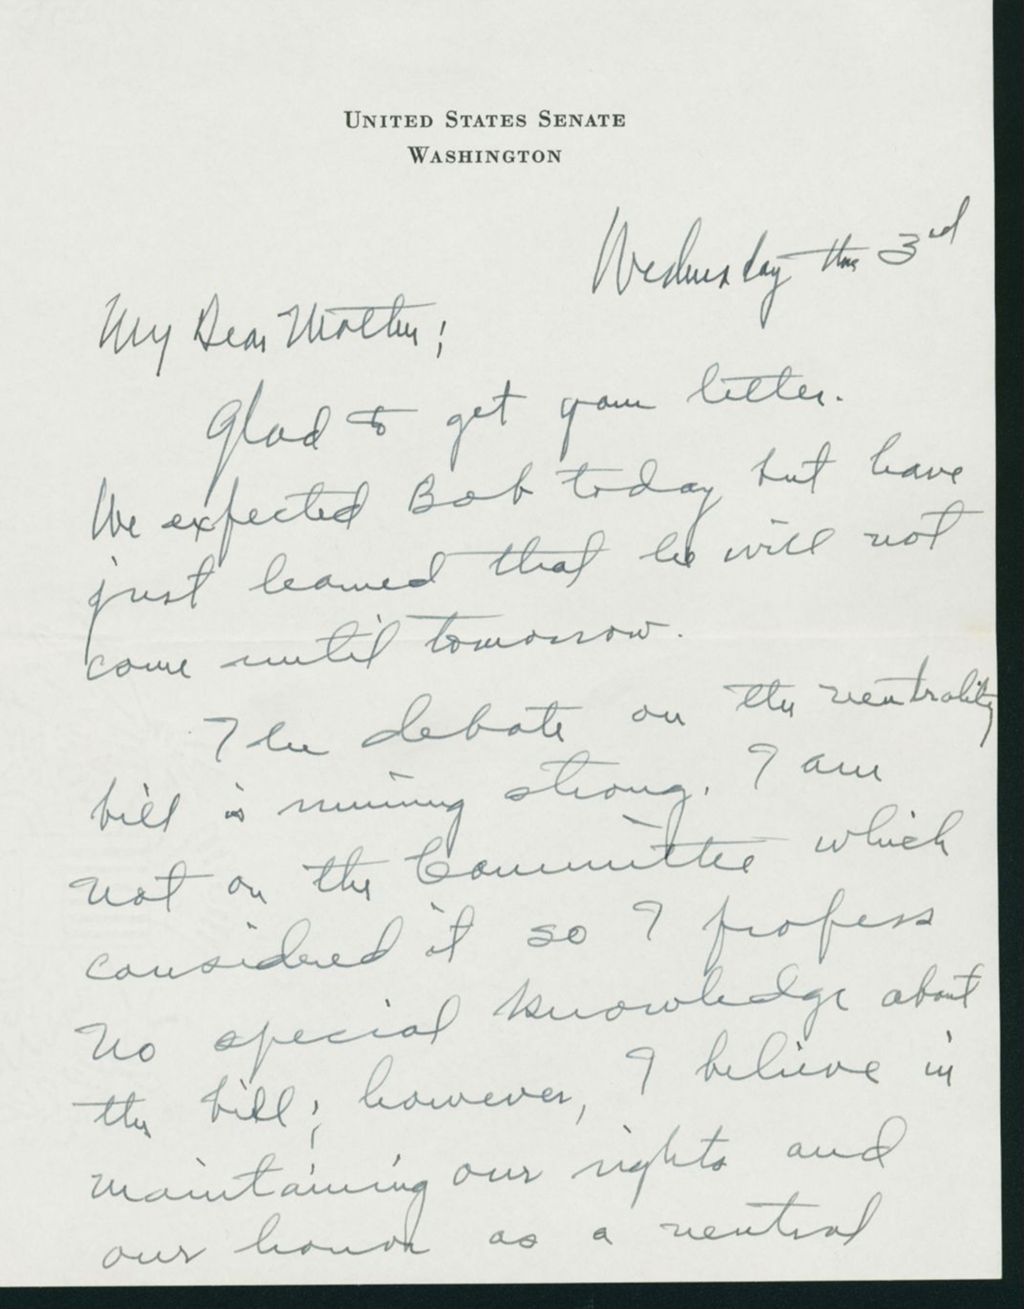 UNITED STATES SENATE
WASHINGTON
Wednesday the 3rd
My Dear Mother;
Glad to get your letter.
We expected Bob today but have
just learned that he will not
come until tomorrow.
The debate on the neutrality
bill is running strong. I am
not on the Committee which
considered it so I profess
no special knowledge about
the bill; however, I believe in
maintaining our rights and
our honor as a neutral